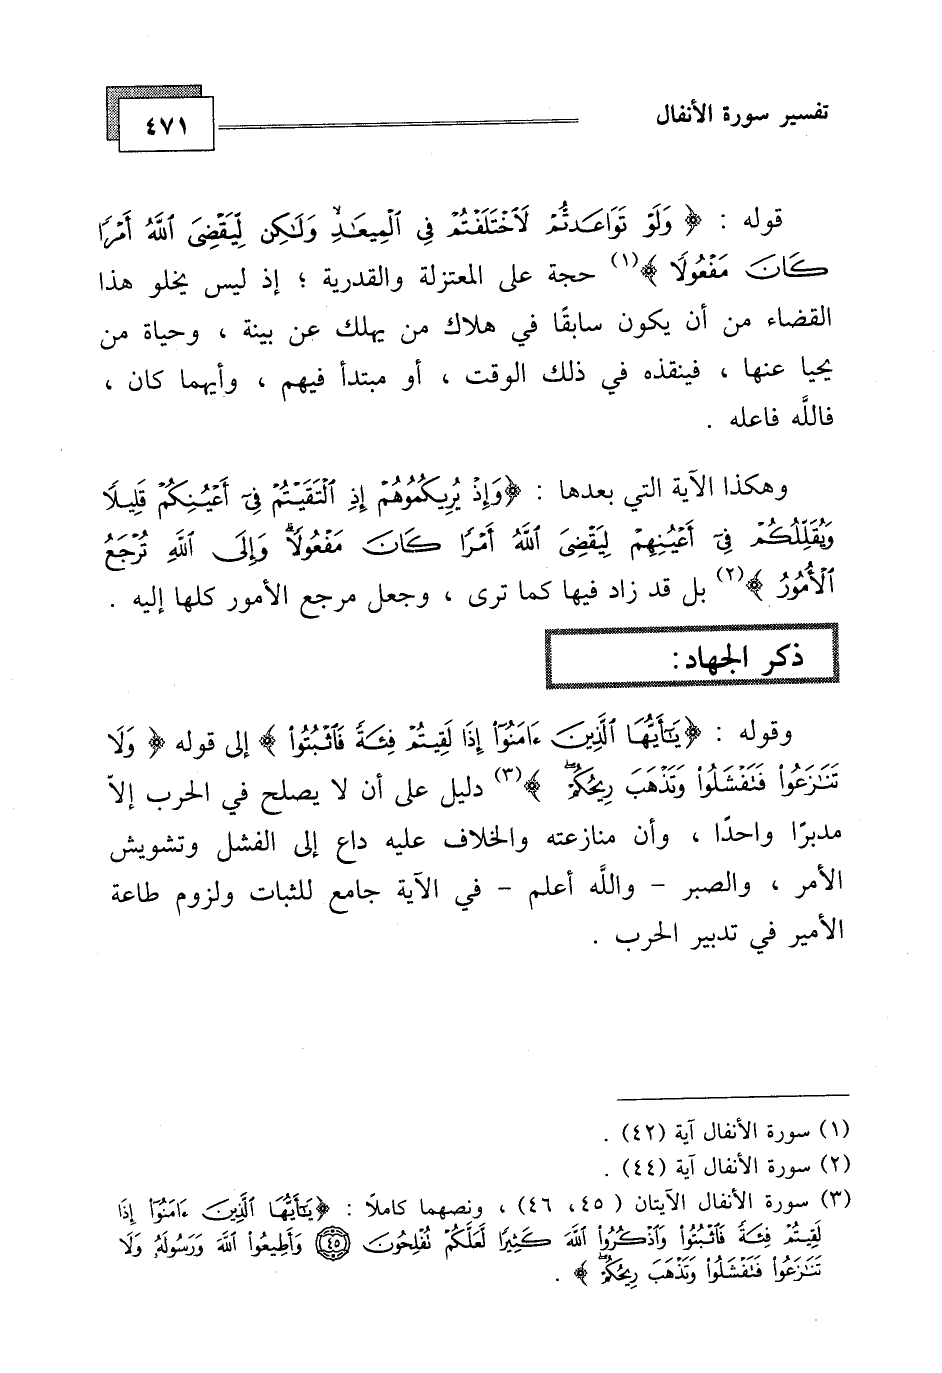 تفسير سورة الأنفال
٤٧١
قوله : ﴿ وَلَوْ تَوَاعَدتُّمْ لَاخْتَلَفْتُمْ فِي الْمِيعَـٰدِ وَلَـٰكِن لِّيَقْضِيَ اللَّهُ أَمْرًا
كَانَ مَفْعُولًا ﴾(١) حجة على المعتزلة والقدرية ؛ إذ ليس يخلو هذا
القضاء من أن يكون سابقًا في هلاك من يهلك عن بينة ، وحياة من
يحيا عنها ، فينقذه في ذلك الوقت ، أو مبتدأ فيهم ، وأيهما كان ،
فاللَّه فاعله .
وهكذا الآية التي بعدها : ﴿وَإِذْ يُرِيكُمُوهُمْ إِذِ الْتَقَيْتُمْ فِيٓ أَعْيُنِكُمْ قَلِيلًا
وَيُقَلِّلُكُمْ فِيٓ أَعْيُنِهِمْ لِيَقْضِيَ اللَّهُ أَمْرًا كَانَ مَفْعُولًاۗ وَإِلَى اللَّهِ تُرْجَعُ
الْأُمُورُ ﴾(٢) بل قد زاد فيها كما ترى ، وجعل مرجع الأمور كلها إليه .
ذكر الجهاد:
وقوله : ﴿يَـٰٓأَيُّهَا الَّذِينَ ءَامَنُوٓا۟ إِذَا لَقِيتُمْ فِئَةً فَاثْبُتُوا۟ ﴾ إلى قوله ﴿ وَلَا
تَنَـٰزَعُوا۟ فَتَفْشَلُوا۟ وَتَذْهَبَ رِيحُكُمْۖ ﴾(٣) دليل على أن لا يصلح في الحرب إلاّ
مدبرًا واحدًا ، وأن منازعته والخلاف عليه داع إلى الفشل وتشويش
الأمر ، والصبر – واللَّه أعلم – في الآية جامع للثبات ولزوم طاعة
الأمير في تدبير الحرب .
(١) سورة الأنفال آية (٤٢) .
(٢) سورة الأنفال آية (٤٤) .
(٣) سورة الأنفال الآيتان ( ٤٥، ٤٦) ، ونصهما كاملًا : ﴿يَـٰٓأَيُّهَا الَّذِينَ ءَامَنُوٓا۟ إِذَا
لَقِيتُمْ فِئَةً فَاثْبُتُوا۟ وَاذْكُرُوا۟ اللَّهَ كَثِيرًا لَّعَلَّكُمْ تُفْلِحُونَ ﴿٤٥﴾ وَأَطِيعُوا۟ اللَّهَ وَرَسُولَهُۥ وَلَا
تَنَـٰزَعُوا۟ فَتَفْشَلُوا۟ وَتَذْهَبَ رِيحُكُمْۖ ﴾ .